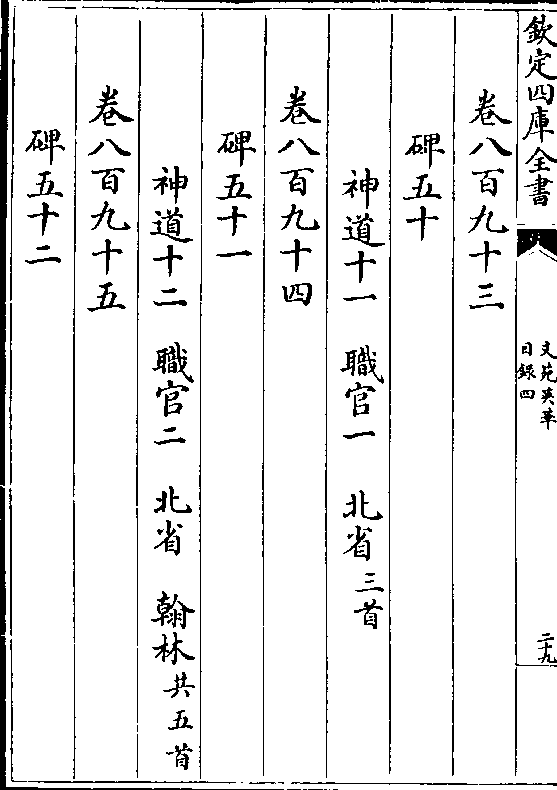 欽定四庫全書
文苑英華
目錄四
二十九
卷八百九十三
碑五十
神道十一 職官一 北省三首
卷八百九十四
碑五十一
神道十二 職官二 北省 翰林共五首
卷八百九十五
碑五十二